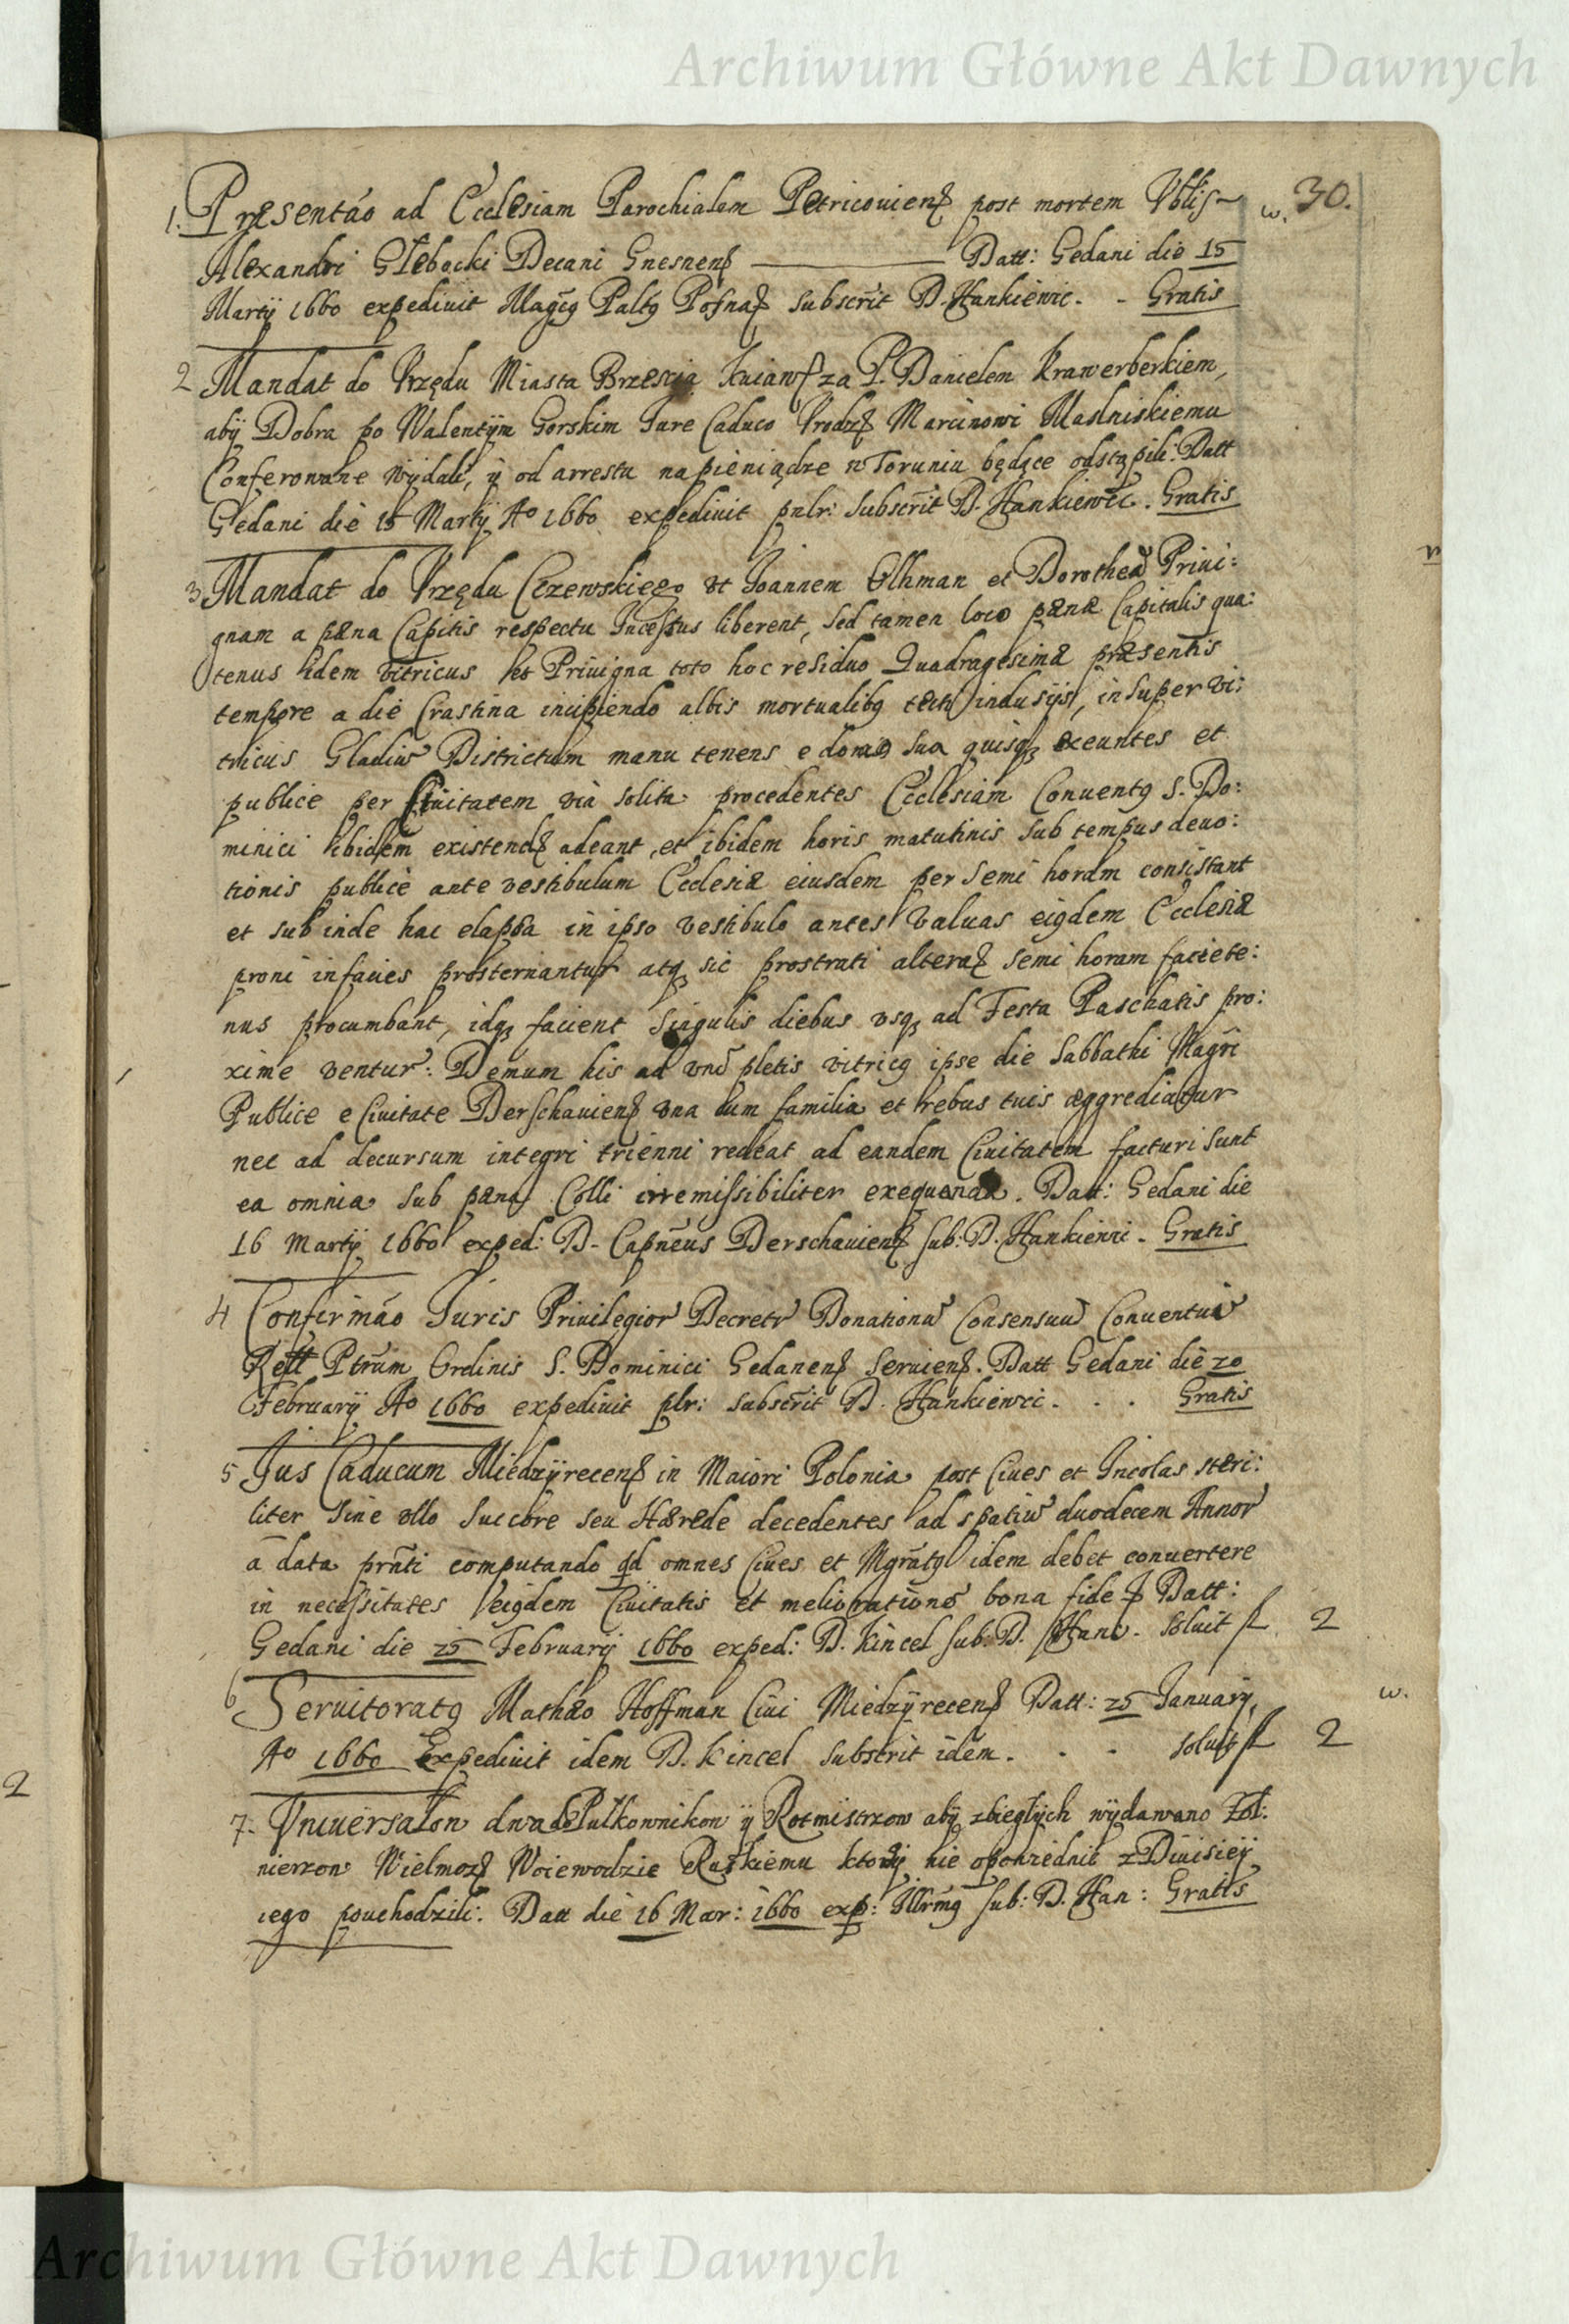 Archiwum Główne Akt Dawnych
30.
w.
1. Præsentāo ad Ecclesiam Parochialem Petricouiens post mortem Vblis
Alexandri Głebocki Decani Gnesnens — Datt: Gedani die 15
Martij 1660 expediuit Magcg Paltg Posnas subscrit D. Hankiewic. - Gratis
2 Mandat do Vrzędu Miasta Brzescia Kuiaws za P. Danielem Krawerberkiem,
abÿ Dobra po Walentÿm Gorskim Jure Caduco Vrodz Marcinowi Maslniskiemu
Conferowane wÿdali, ÿ od arrestu na pieniądze w Toruniu będące odstąpili. Datt
Gedani die 15 Martij Ao 1660 expediuit pnlr: subscrit D. Hankiewic. Gratis
3 Mandat do Vrzędu Czewskiego vt Joannem Olhman et Dorotheā Priui:
gnam a pæna Capitis respectu Incestus liberent, sed tamen loco pænæ Capitalis qua:
tenus iidem vitricus et Priuigna toto hoc residuo Quadragesimæ præsentis
tempore a die Crastina incipiendo albis mortualibg tecti indusijs, insuper vi:
tricus Gladiū Districtum manu tenens e domo sua quisq exeuntes et
publice per Ciuitatem via solita procedentes Ecclesiam Conuentg S. Do:
minici ibidem existend adeant, et ibidem horis matutinis sub tempus deuo:
tionis publice ante vestibulum Ecclesiæ eiusdem per semi horam consistant
et subinde hac elapsa in ipso vestibulo antes valuas eigdem Ecclesiæ
proni in facies prosternantur atq sic prostrati alteram semi horam faciete:
nus procumbant, idq facient singulis diebus vsq ad Festa Paschatis pro:
xime ventur: Demum his ad vnū pletis vitricg ipse die Sabbathi Magni
Publice e Ciuitate Derschauiens vna cum familia et rebus suis æggrediatur
nec ad decursum integri trienni redeat ad eandem Ciuitatem facturi sunt
ea omnia sub pæna Colli irremissibiliter exequenda. Datt: Gedani die
16 Martij 1660 exped: D. Capnēus Derschauiens sub: D. Hankiewi - Gratis
4 Confirmāo Juris Priuilegior Decretor Donationū Consensuū Conuentui
Rell Ptrum Ordinis S. Dominici Gedanens seruiens. Datt Gedani die 20
Februarij Ao 1660 expediuit plr: subscrit D. Hankiewci. . . Gratis
5 Jus Caducum Miedzÿrecens in Maiori Polonia post Ciues et Incolas steri:
liter sine vllo succōre seu Hærede decedentes ad spatiū duodecem Annor
a data prāti computando qd omnes Ciues et Mgrātg idem debet conuertere
in necessitates eigdem Ciuitatis et meliorationē bona fide. Datt:
Gedani die 25 Februarij 1660 exped: D. Kincel sub: D. Hank. soluit fl 2
6 Seruitoratg Mathæo Hoffman Ciui Miedzÿrecens Datt: 25 Januarij
w.
Ao 1660 Expediuit idem D. Kincel subscrit idem. . . soluit fl 2
7. Vniuersalow dwa do Pułkownikow ÿ Rotmistrzow abÿ zbiegłÿch wÿdawano Zoł:
nierzow Wielmoz Woiewodzie Ruskiemu ktorzÿ nie oponiednie z Diuisieÿ
iego pouchodzili. Datt die 16 Mar: 1660 exp: Illrmg sub: D. Han: Gratis
2
Archiwum Główne Akt Dawnych